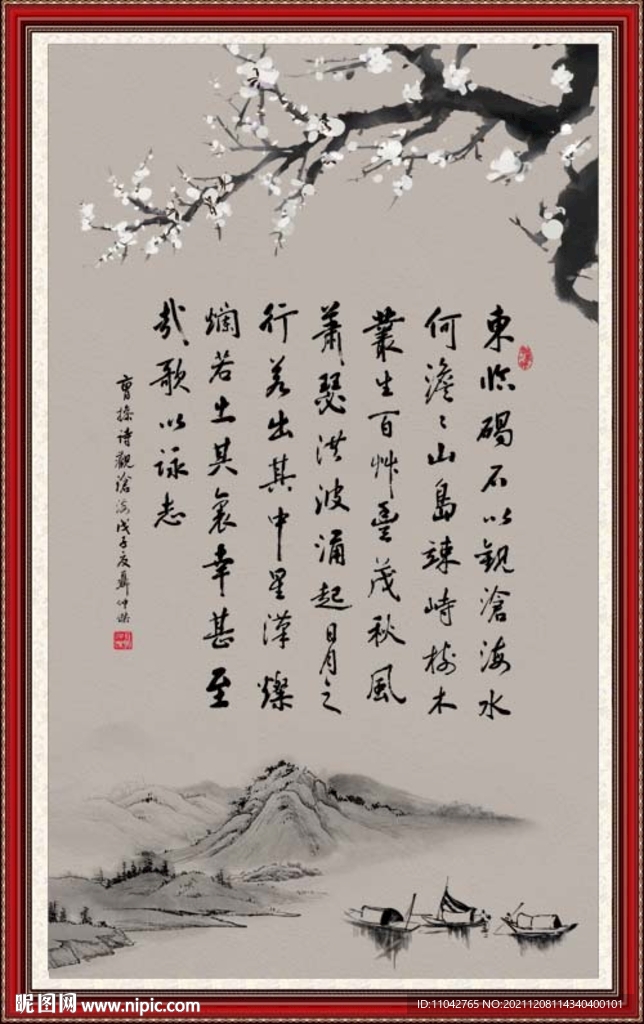 東臨碣石以觀滄海水
何澹々山島竦峙樹木
叢生百艸豐茂秋風
蕭瑟洪波涌起日月之
行若出其中星漢燦
爛若出其裏幸甚至
哉歌以詠志
曹操诗觀滄海戊子夏聶仲
昵图网 www.nipic.com
ID:11042765 NO:20211208114340400101